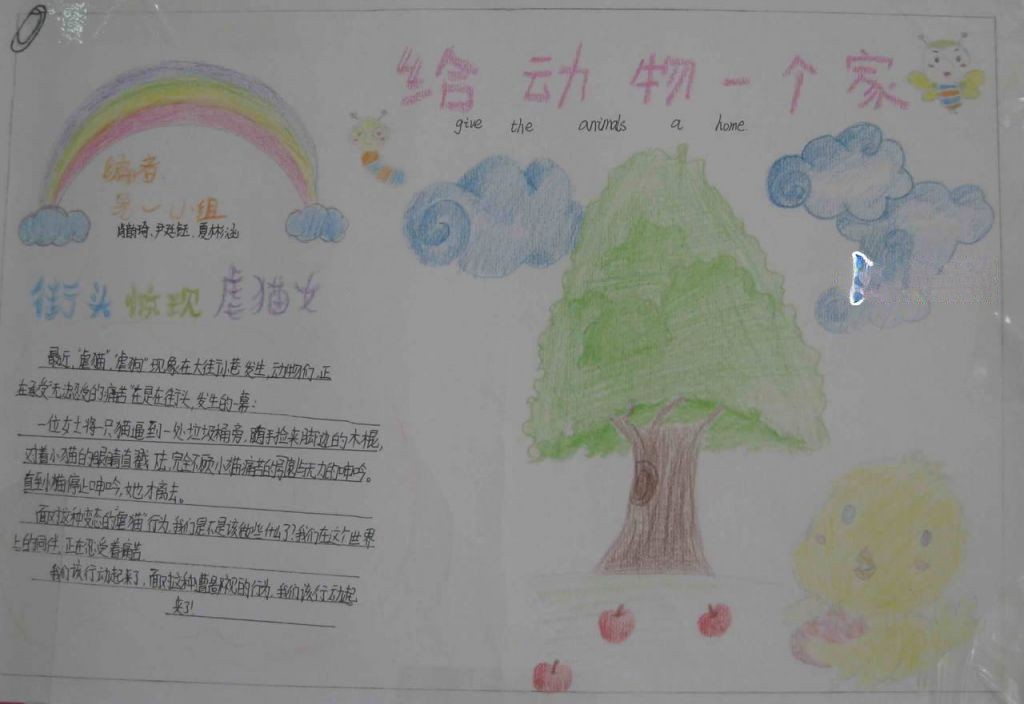 给动物一个家
give the animals a home
编者
第一小组
尹廷钰、夏彬涵
街头惊现虐猫女
最近,“虐猫”,“虐狗”现象在大街小巷发生,动物们,正
在承受“无法忍受的痛苦”在是在街头,发生的一幕:
一位女士将一只猫逼到一处垃圾桶旁,随手捡来脚边的木棍,
对着小猫的眼睛直戳下去,完全不顾小猫痛苦的与无力的呻吟。
直到小猫停止呻吟,她才离去。
面对这种变态的“虐猫”行为,我们是不是该做些什么了?我们在这个世界
上的同伴,正在忍受着痛苦
我们该行动起来了,面对这种的行为,我们该行动起
来了!